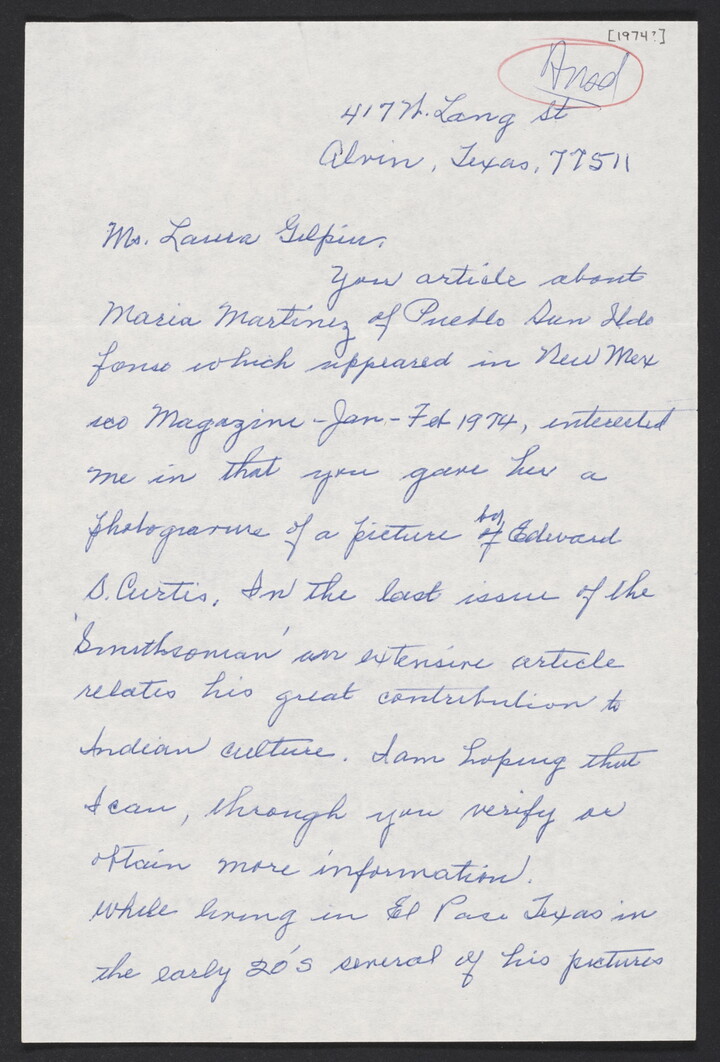 [1974?]
Ansd
417 W. Lang St
Alvin, Texas, 77511
Ms. Laura Gilpin,
You article about
Maria Martinez of Pueblo San Ildo
fonso which appeared in New Mex
ico Magazine - Jan - Feb 1974, interested
me in that you gave her a
photogravure of a picture of by Edward
S. Curtis. In the last issue of the
'Smithsonian' an extensive article
relates his great contribution to
Indian culture. I am hoping that
I can, through you verify or
obtain more information.
While living in El Paso Texas in
the early 20's several of his pictures